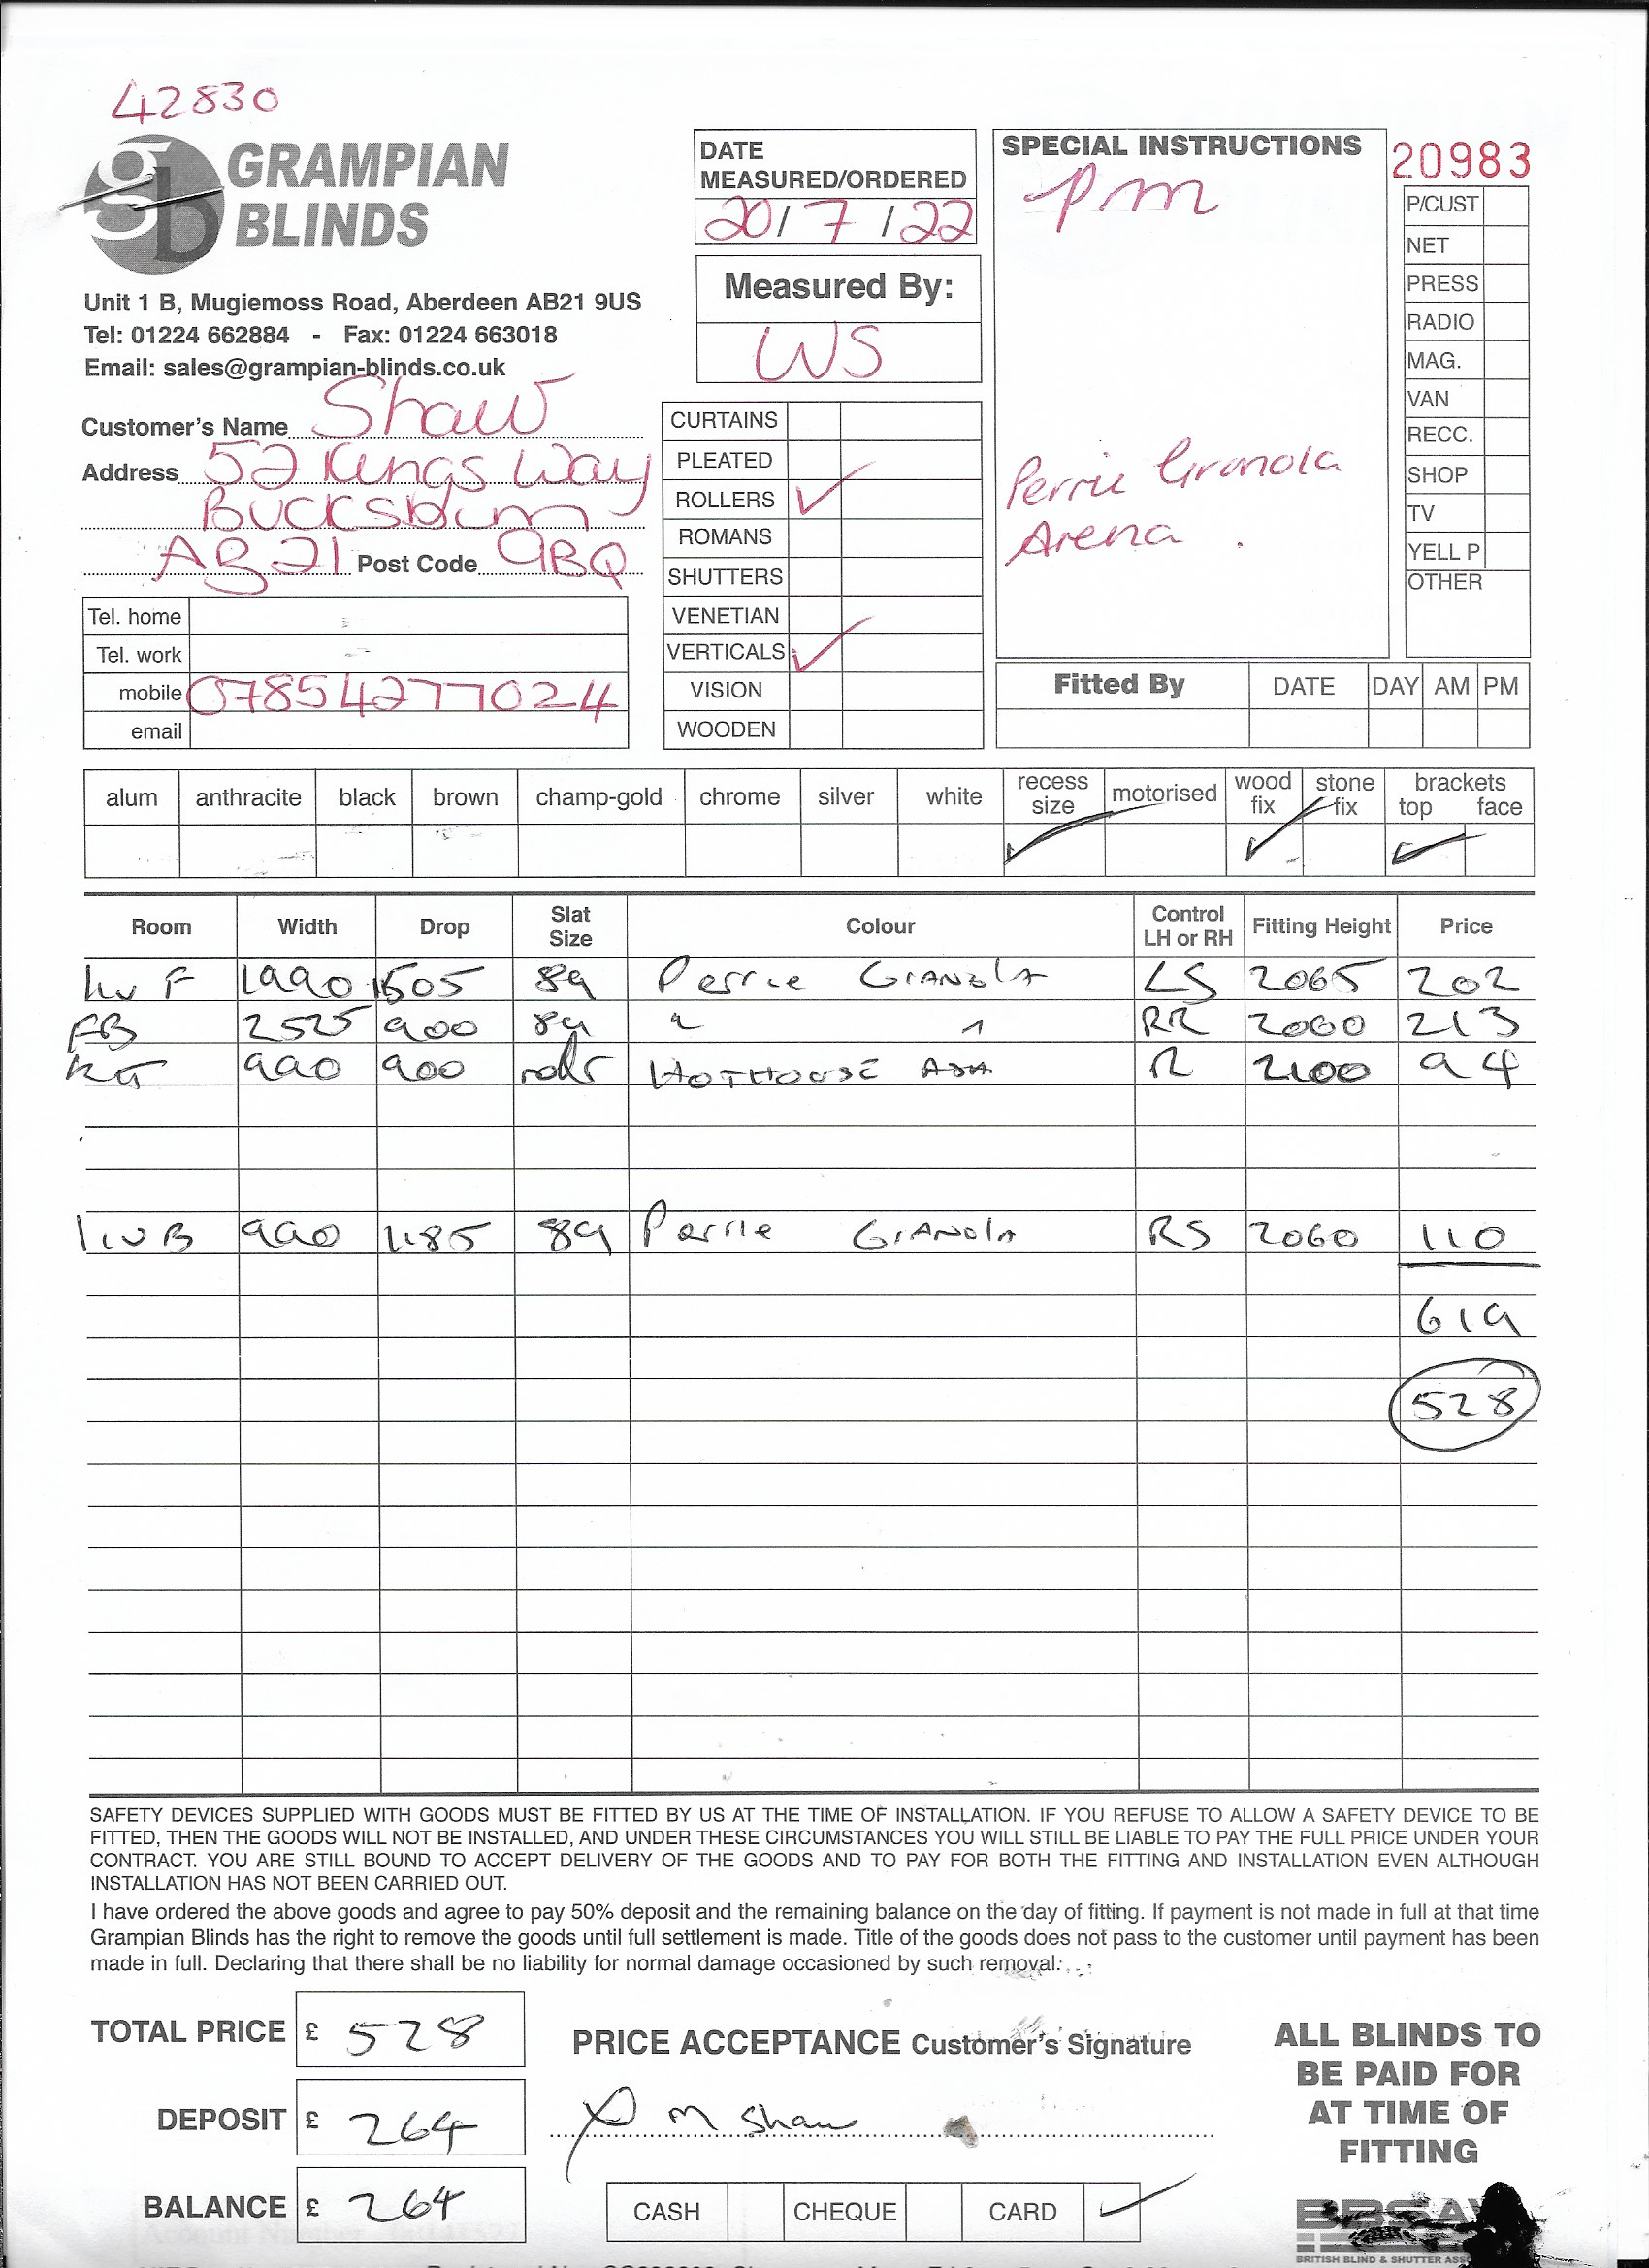 42830
GRAMPIAN
BLINDS
Unit 1 B, Mugiemoss Road, Aberdeen AB21 9US
Tel: 01224 662884 - Fax: 01224 663018
Email: sales@grampian-blinds.co.uk
Customer's Name Shaw
Address 52 Kings Way
Bucksburn
AB21 Post Code 9BQ
Tel. home
Tel. work
mobile 07854277024
email
DATE
MEASURED/ORDERED
20/7/22
Measured By:
WS
CURTAINS
PLEATED
ROLLERS ✓
ROMANS
SHUTTERS
VENETIAN
VERTICALS ✓
VISION
WOODEN
SPECIAL INSTRUCTIONS
pm
Perrie Granola
Arena .
20983
P/CUST
NET
PRESS
RADIO
MAG.
VAN
RECC.
SHOP
TV
YELL P
OTHER
Fitted By DATE DAY AM PM
alum anthracite black brown champ-gold chrome silver white recess size motorised wood fix stone fix brackets top face
Room Width Drop Slat Size Colour Control LH or RH Fitting Height Price
Liv F 1990 1505 89 Perrie Granola LS 2065 202
FB 2525 900 89 " " RR 2060 213
Kit 990 900 roller HOTHOUSE R 2100 94
Liv B 990 1185 89 Perrie Granola RS 2060 110
619
528
SAFETY DEVICES SUPPLIED WITH GOODS MUST BE FITTED BY US AT THE TIME OF INSTALLATION. IF YOU REFUSE TO ALLOW A SAFETY DEVICE TO BE
FITTED, THEN THE GOODS WILL NOT BE INSTALLED, AND UNDER THESE CIRCUMSTANCES YOU WILL STILL BE LIABLE TO PAY THE FULL PRICE UNDER YOUR
CONTRACT. YOU ARE STILL BOUND TO ACCEPT DELIVERY OF THE GOODS AND TO PAY FOR BOTH THE FITTING AND INSTALLATION EVEN ALTHOUGH
INSTALLATION HAS NOT BEEN CARRIED OUT.
I have ordered the above goods and agree to pay 50% deposit and the remaining balance on the day of fitting. If payment is not made in full at that time
Grampian Blinds has the right to remove the goods until full settlement is made. Title of the goods does not pass to the customer until payment has been
made in full. Declaring that there shall be no liability for normal damage occasioned by such removal.
TOTAL PRICE £ 528
DEPOSIT £ 264
BALANCE £ 264
PRICE ACCEPTANCE Customer's Signature
M Shaw
CASH CHEQUE CARD ✓
ALL BLINDS TO
BE PAID FOR
AT TIME OF
FITTING
BRITISH BLIND & SHUTTER